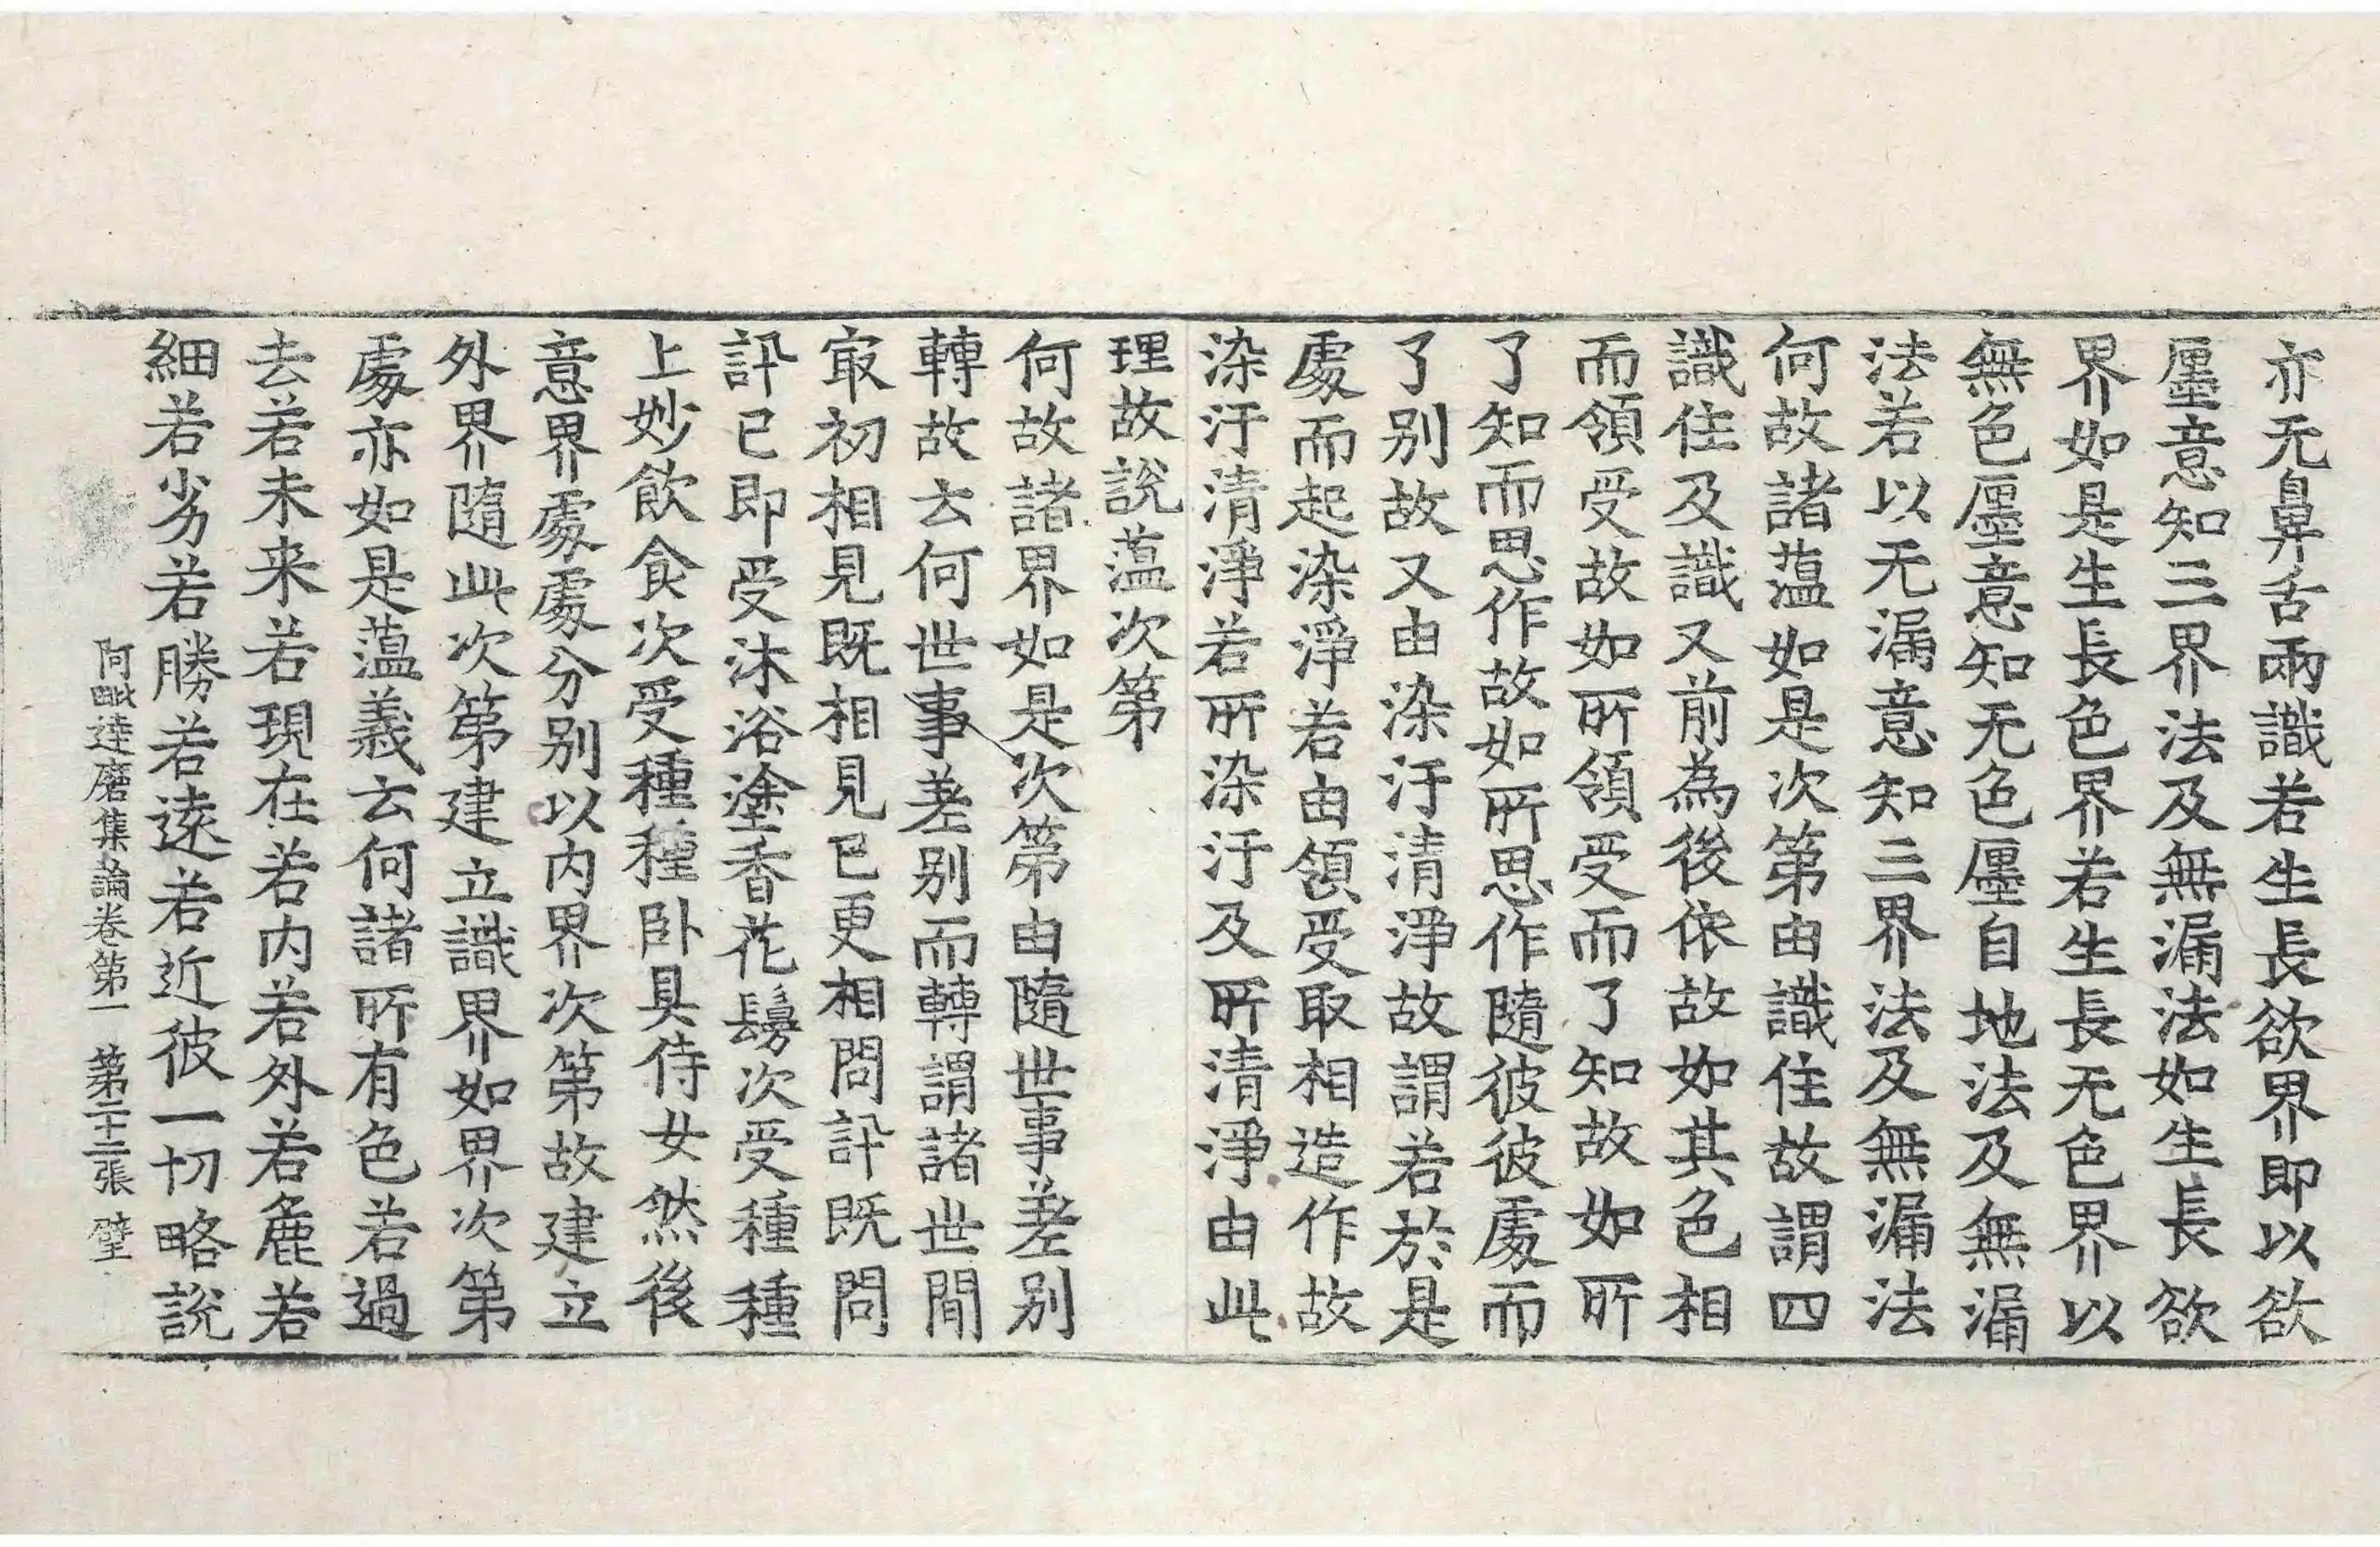 亦无鼻舌兩識若生長欲界即以欲
㕓意知三界法及無漏法如生長欲
界如是生長色界若生長无色界以
無色㕓意知无色㕓自地法及無漏
法若以无漏意知三界法及無漏法
何故諸蕰如是次第由識住故謂四
識住及識又前為後依故如其色相
而領受故如所領受而了知故如所
了知而思作故如所思作隨彼彼處而
了别故又由染汙清淨故謂若於是
處而起染淨若由領受取相造作故
染汙清淨若所染汙及所清淨由此
理故說蕰次第
何故諸界如是次第由隨世事差别
轉故云何世事差别而轉謂諸世間
㝡初相見既相見已更相問訊既問
訊已即受沐浴塗香花鬘次受種種
上妙飲食次受種種卧具侍女然後
意界處處分别以内界次第故建立
外界隨此次第建立識界如界次第
處亦如是蕰義云何諸所有色若過
去若未来若現在若内若外若麁若
細若劣若勝若遠若近彼一切略說
阿毗達磨集論卷第一 第二十二張 璧